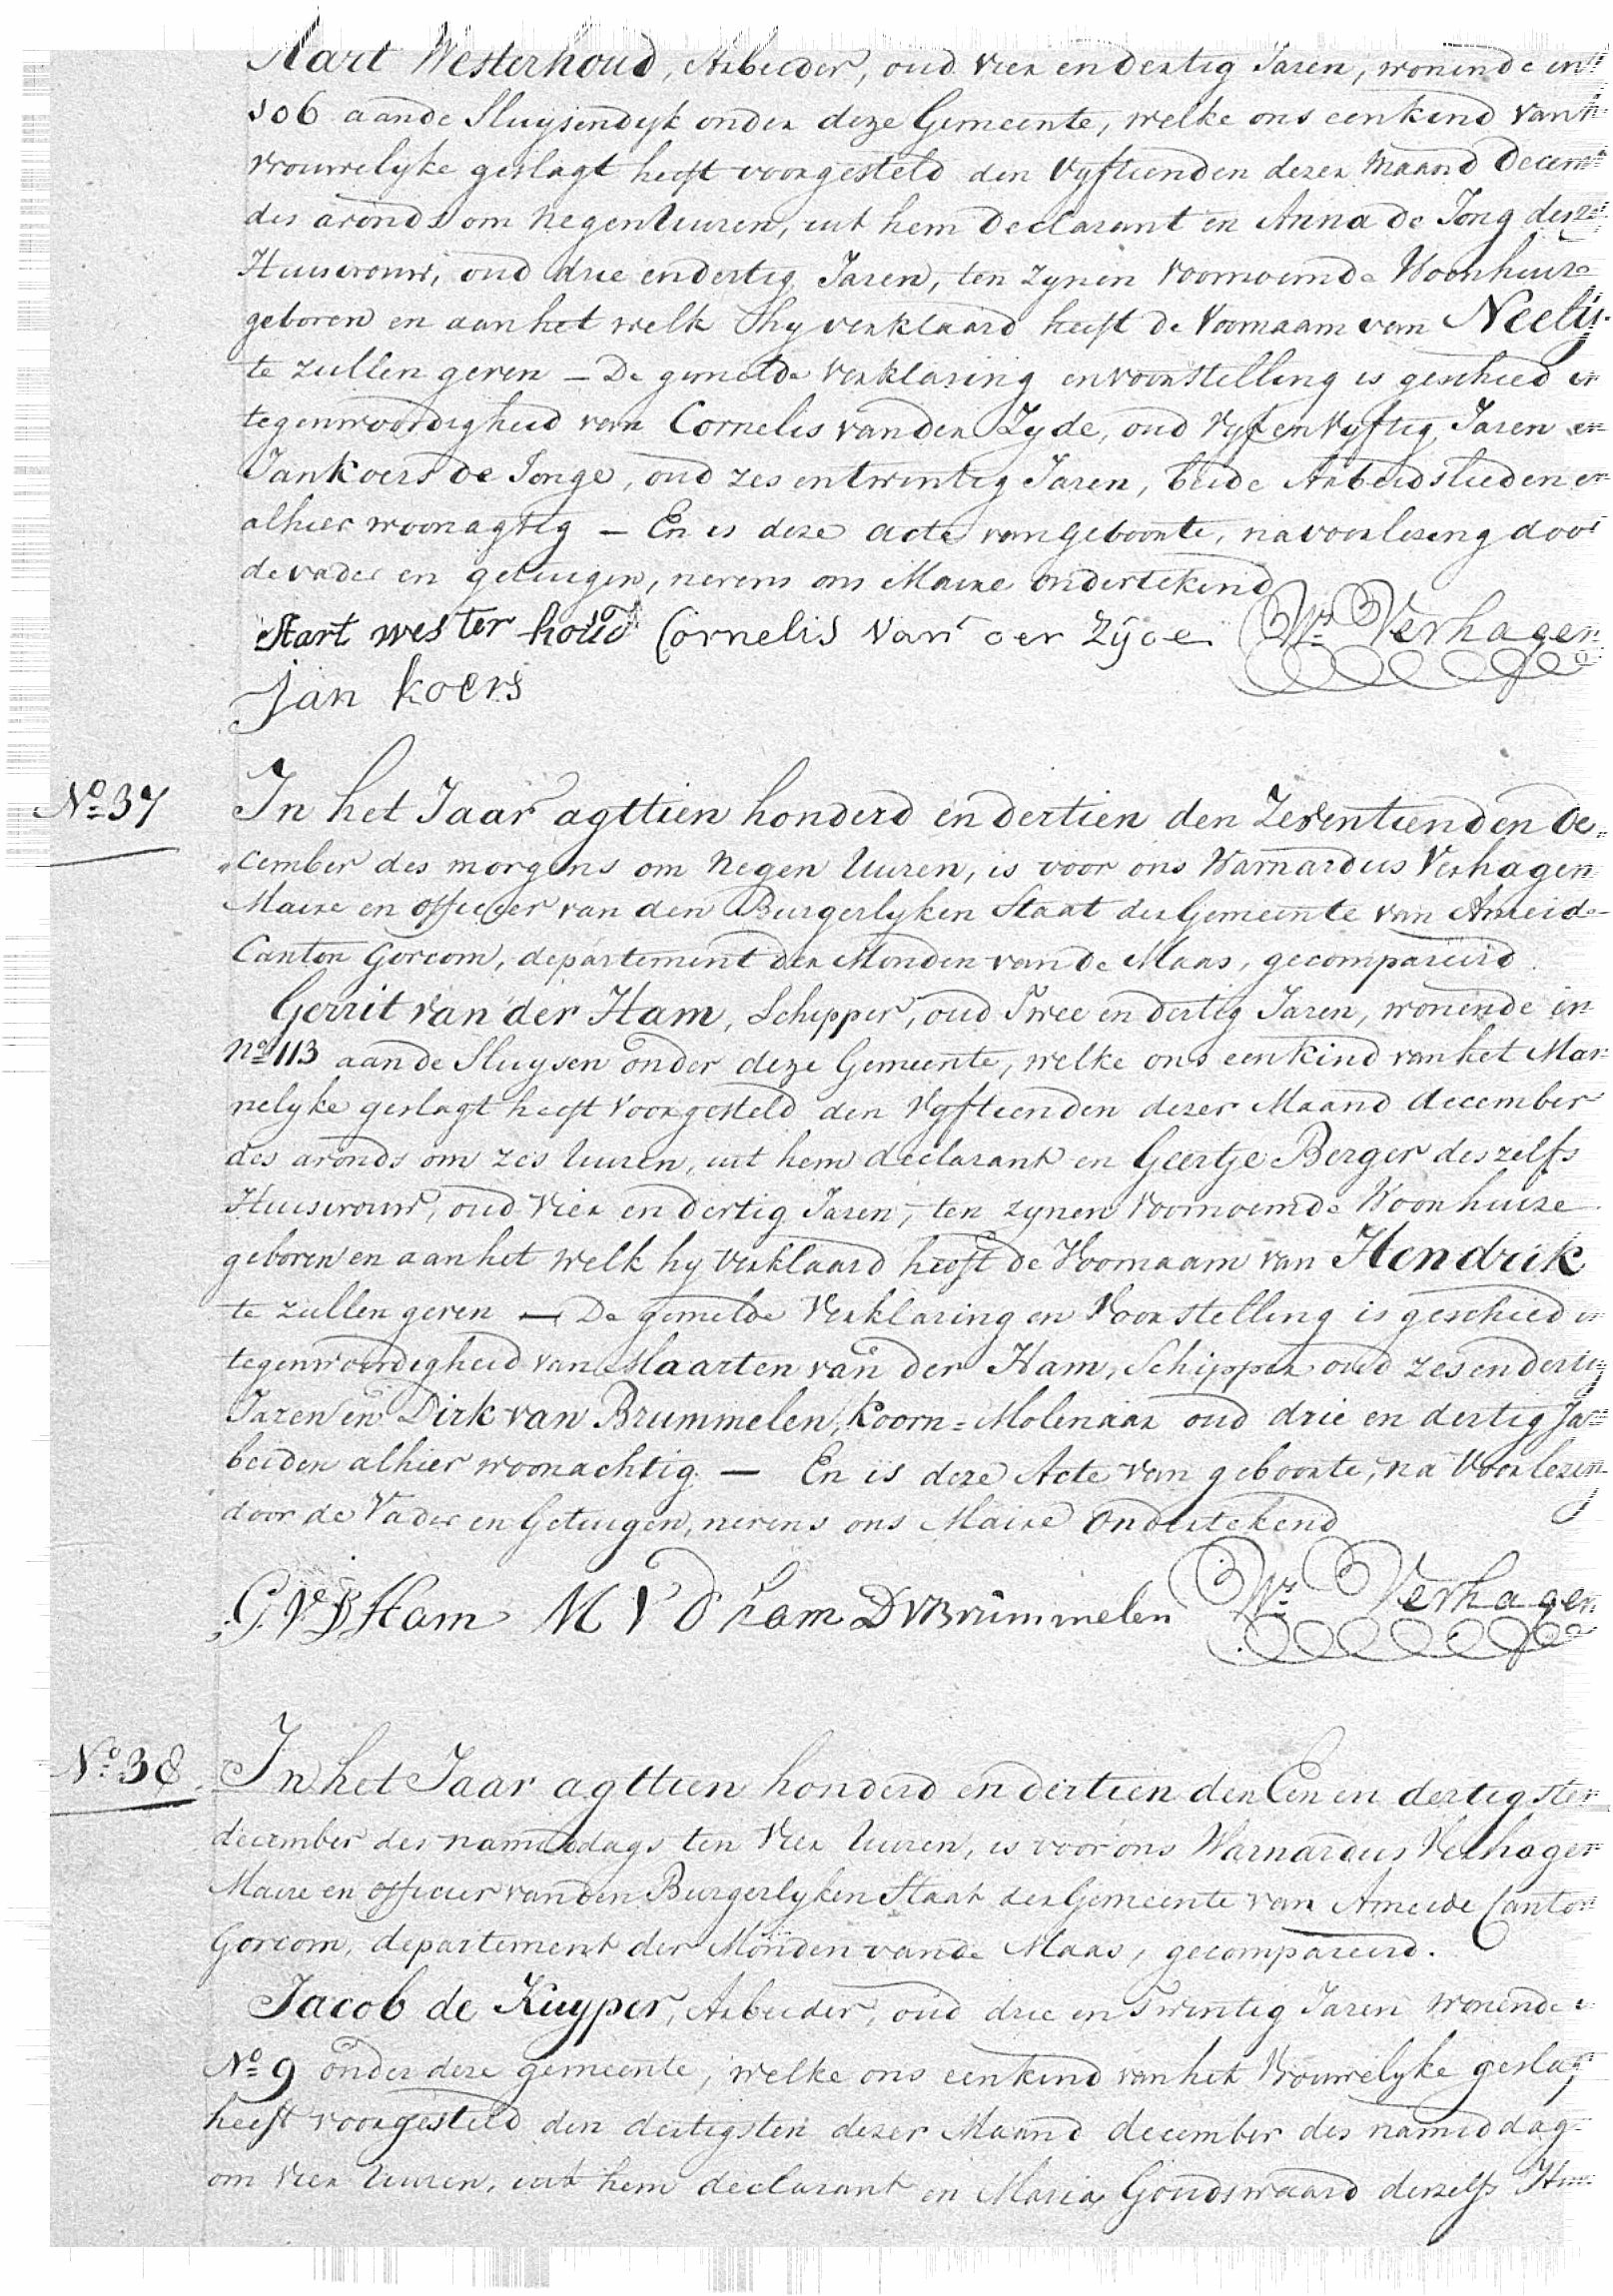 Aart Westerhoud, Arbeider, oud vier en dertig Jaren, wonende in
106 aan de Sluysendyk onder deze Gemeente, welke ons een kind van
vrouwelyke geslagt heeft voorgesteld den Vyftienden dezer Maand Decem
des avonds om Negen Uuren, uit hem Declarant en Anna de Jong desz
Huisvrouw, oud drie en dertig Jaren, ten zynen Voornoemde Woonhuize
geboren en aan het welk hy verklaard heeft de Voornaam van Neely
te zullen geven — De gemelde Verklaring en voorstelling is geschied in
tegenwoordigheid van Cornelis van der Zyde, oud Vyf en Vyftig Jaren en
Jan Koers de Jonge, oud zes en twintig Jaren, beide Arbeidslieden en
alhier woonagtig — En is deze acte van geboorte, na voorlezing door
de vader en getuigen, nevens ons Maire ondertekend
Aart wester houd Cornelis van der Zijde Wr. Verhagen
Jan koers
No. 37
In het Jaar agttien honderd en dertien den Zeventienden De„
„cember des morgens om Negen Uuren, is voor ons Warnardus Verhagen
Maire en officier van den Burgerlyken Staat der Gemeente van Ameide
Canton Gorcom, departement der Monden van de Maas, gecompareerd
Gerrit van der Ham, Schipper, oud Twee en dertig Jaren, wonende in
No. 113 aan de Sluysen onder deze Gemeente, welke ons een kind van het Man
nelyke geslagt heeft voorgesteld den Vyftienden dezer Maand december
des avonds om zes Uuren, uit hem declarant en Geertje Berger deszelfs
Huisvrouw, oud Vier en dertig Jaren, ten zynen Voornoemde Woonhuize
geboren en aan het welk hy Verklaard heeft de Voornaam van Hendrik
te zullen geven — De gemelde Verklaring en Voorstelling is geschied in
tegenwoordigheid van Maarten van der Ham, Schipper oud zes en dertig
Jaren en Dirk van Brummelen, Koorn=Molenaar oud drie en dertig Ja
beiden alhier woonachtig. — En is deze Acte van geboorte, na Voorlezin
door de Vader en Getuigen, nevens ons Maire Ondertekend
G. V D Ham M V D ham D V Brummelen Wr. Verhagen
No. 38
In het Jaar agttien honderd en dertien den Een en dertigsten
december des namiddags ten Vier Uuren, is voor ons Warnardus Verhagen
Maire en officier van den Burgerlyken Staat der Gemeente van Ameide Canton
Gorcom, departement der Monden van de Maas, gecompareerd.
Jacob de Kuyper, Arbeider, oud drie en Twintig Jaren wonende
No. 9 onder deze gemeente, welke ons een kind van het Vrouwelyke geslag
heeft voorgesteld den dertigsten dezer Maand december des namiddag
om Vier Uuren, uit hem declarant en Maria Goudswaard deszelfs Hui